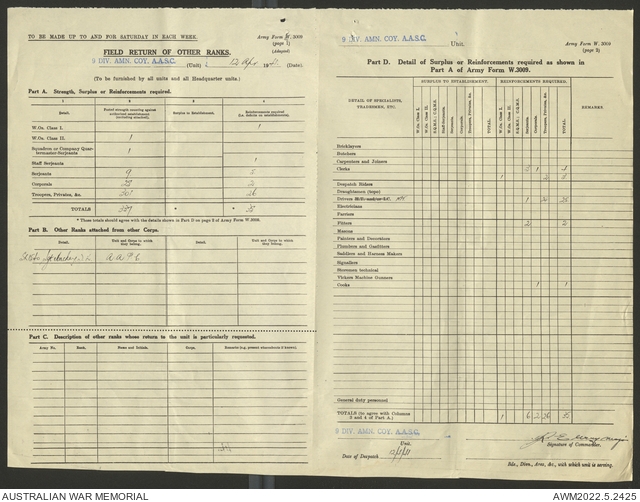 TO BE MADE UP TO AND FOR SATURDAY IN EACH WEEK.
Army Form W.3009
(page 1)
(Adapted)
FIELD RETURN OF OTHER RANKS.
9 DIV. AMN. COY. A.A.S.C. (Unit) 12 Apr 1941 (Date).
(To be furnished by all units and all Headquarter units.)
Part A. Strength, Surplus or Reinforcements required.
1 2 3 4
Detail. Posted strength counting against authorized establishment (including attached). Surplus to Establishment. Reinforcements required (i.e. deficient of establishment).
W.On. Class I. 1
W.On. Class II. 1
Squadron or Company Quarter-master-Serjeants 1
Staff Serjeants 1
Serjeants 9
Corporals 2
Troopers, Privates, &c. 26
TOTALS * * 35
* These totals should agree with the details shown in Part D on page 2 of Army Form W.3009.
Part B. Other Ranks attached from other Corps.
Detail. Unit and Corps to which they belong. Detail. Unit and Corps to which they belong.
Part C. Description of other ranks whose return to the unit is particularly requested.
Army No. Rank. Name and Initials. Corps. Remarks (e.g. present whereabouts if known).
9 DIV. AMN. COY. A.A.S.C. Unit.
Army Form W. 3009
(page 2)
Part D. Detail of Surplus or Reinforcements required as shown in
Part A of Army Form W.3009.
SURPLUS TO ESTABLISHMENT. REINFORCEMENTS REQUIRED.
DETAIL OF SPECIALISTS, TRADESMEN, ETC.
W.On. Class I. W.On. Class II. S.Q.M.S., C.Q.M.S. Staff-Serjeants Serjeants Corporals Troopers, Privates, &c. TOTAL.
REMARKS.
Bricklayers
Butchers
Carpenters and Joiners
Clerks
Despatch Riders
Draughtsmen (topo)
Drivers
Electricians
Farriers
Fitters 2 2
Masons
Painters and Decorators
Plumbers and Gasfitters
Saddlers and Harness Makers
Signallers
Storemen technical
Vickers Machine Gunners
Cooks 1 1
General duty personnel
TOTALS (to agree with Columns 3 and 4 of Part A.) 1 6 2 26 35
9 DIV. AMN. COY. A.A.S.C.
Unit.
Signature of Commander.
Date of Despatch
Bde., Divn., Area, &c., with which unit is serving.
AUSTRALIAN WAR MEMORIAL
AWM2022.5.2425